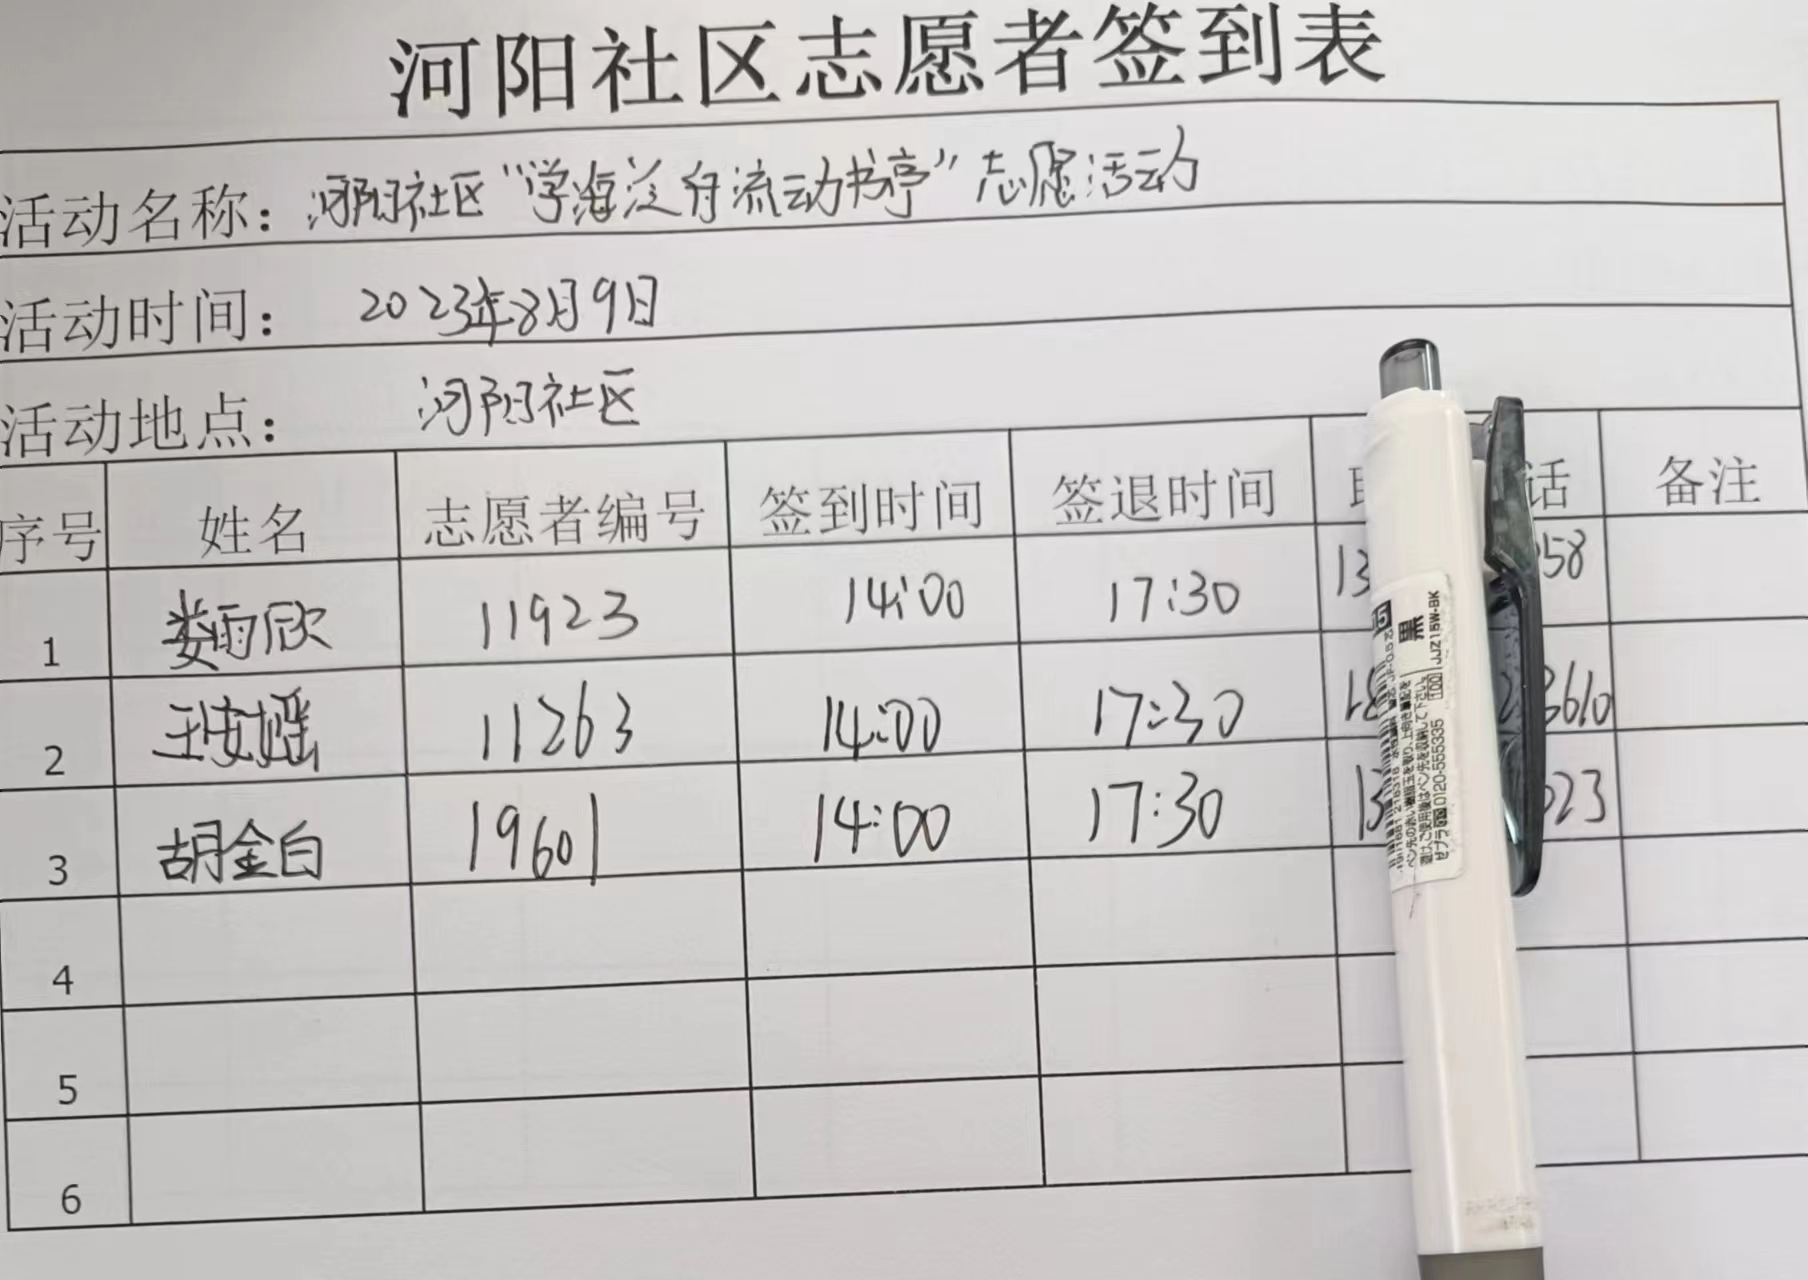 河阳社区志愿者签到表
活动名称：河阳社区“学海泛舟流动书亭”志愿活动
活动时间：2023年8月9日
活动地点：河阳社区
序号 姓名 志愿者编号 签到时间 签退时间 话 备注
1 娄雨欣 11923 14:00 17:30 13 58
2 王安婷 11263 14:00 17:30 18 3610
3 胡金白 19601 14:00 17:30 13 523
4
5
6
黑
JJZ15W-BK
100
0120-555335